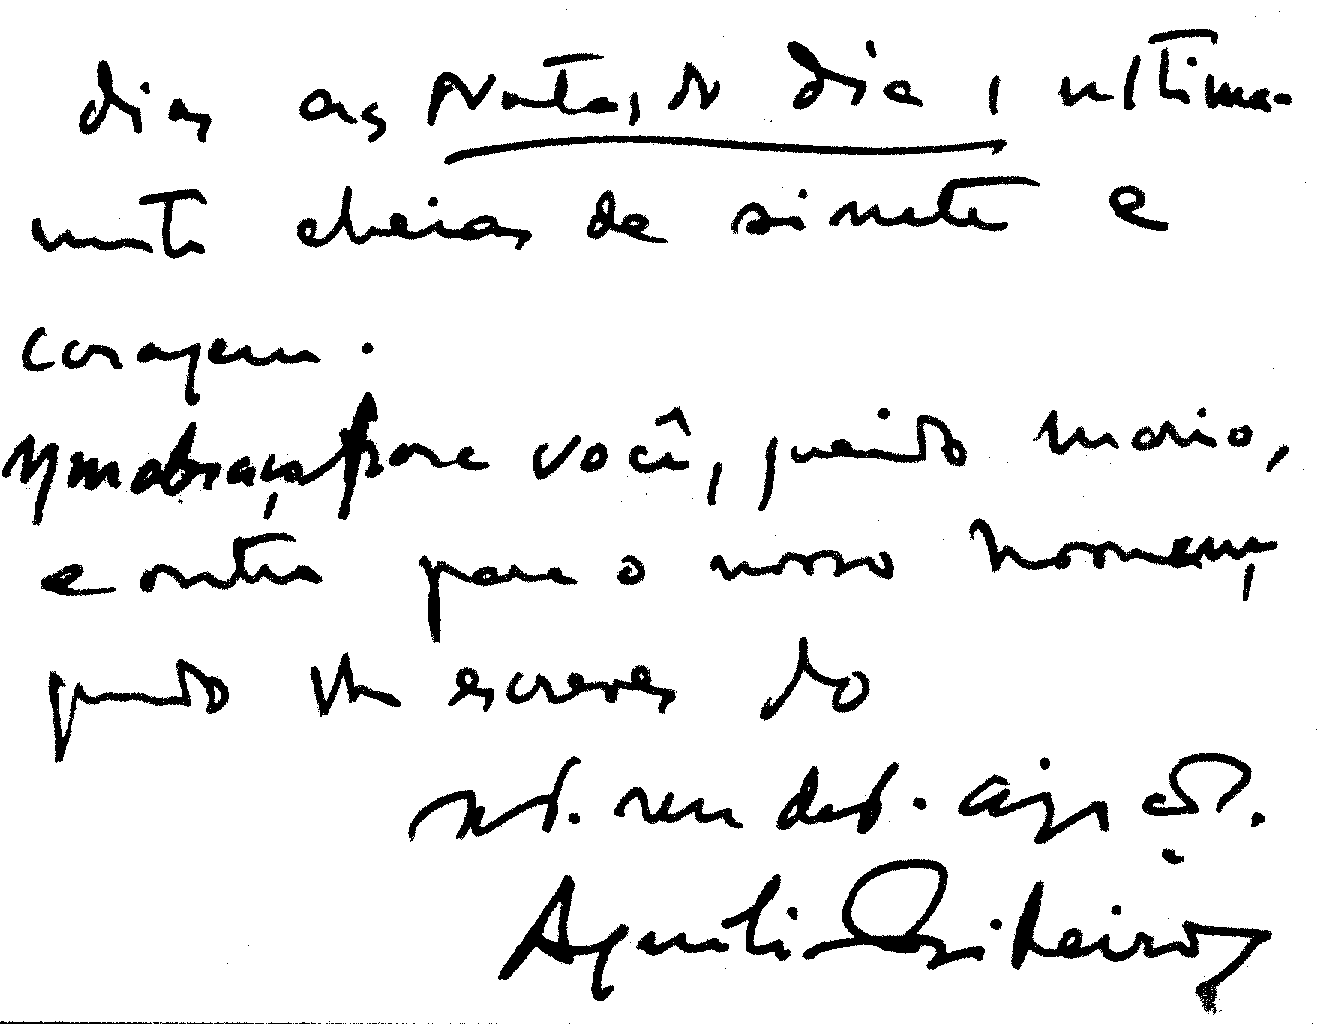 dias as Notas do dia, ultima-
mente cheias de sinete e
coragem.
Um abraço para você, querido Mario,
e outro para o nosso homem,
quando lhe escreves do
Aquilino Ribeiro